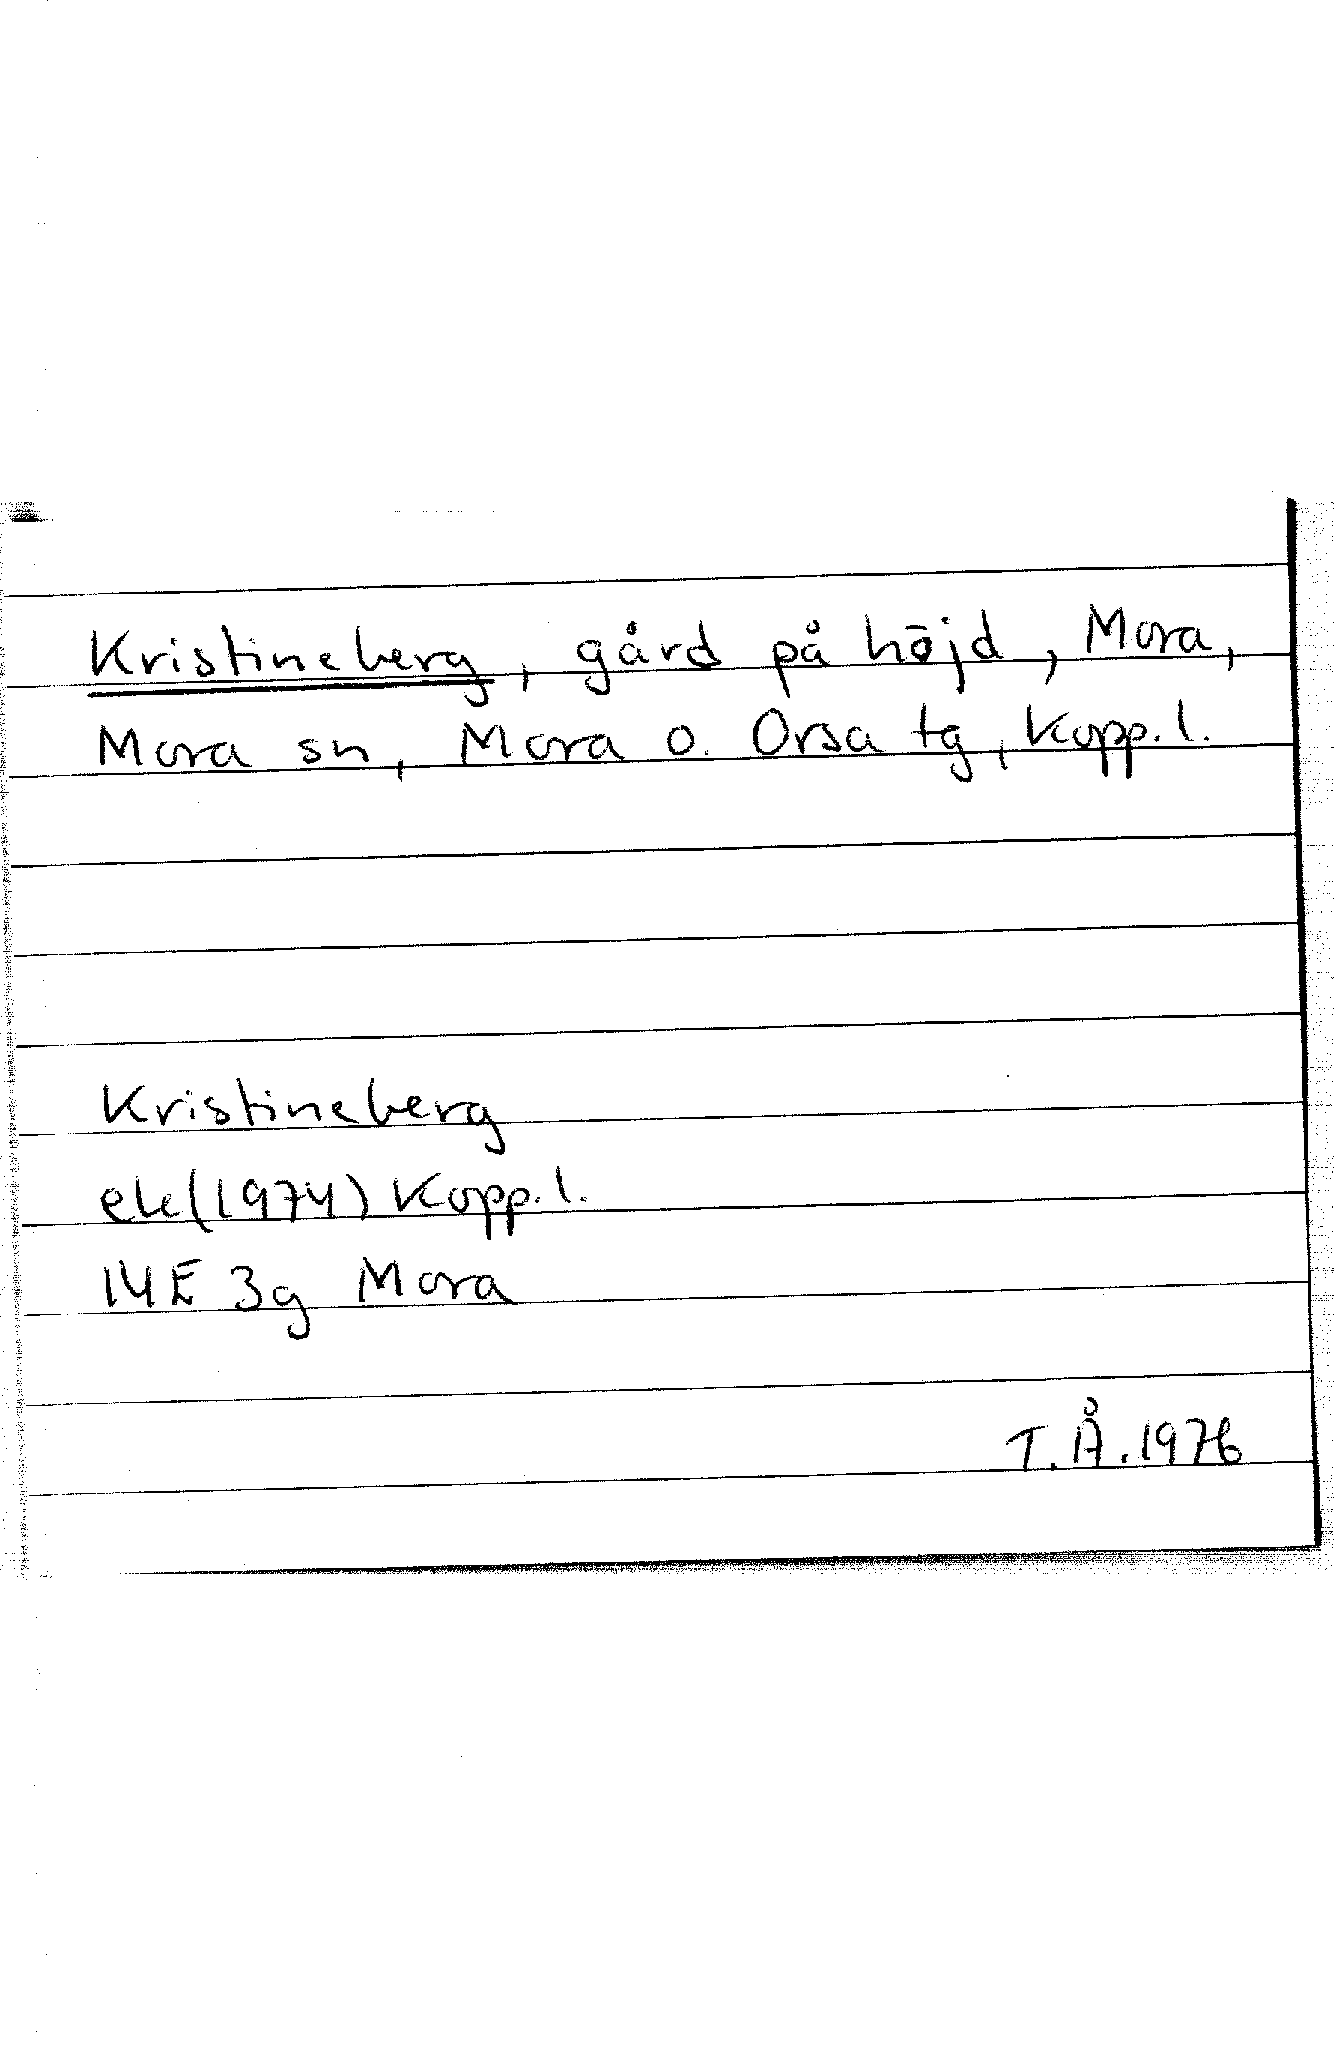 Kristineberg, gård på höjd, Mora,
Mora sn, Mora o. Orsa tg, Kopp. l.
Kristineberg
ek(1974) Kopp. l.
14E 3g Mora
T. Å. 1976